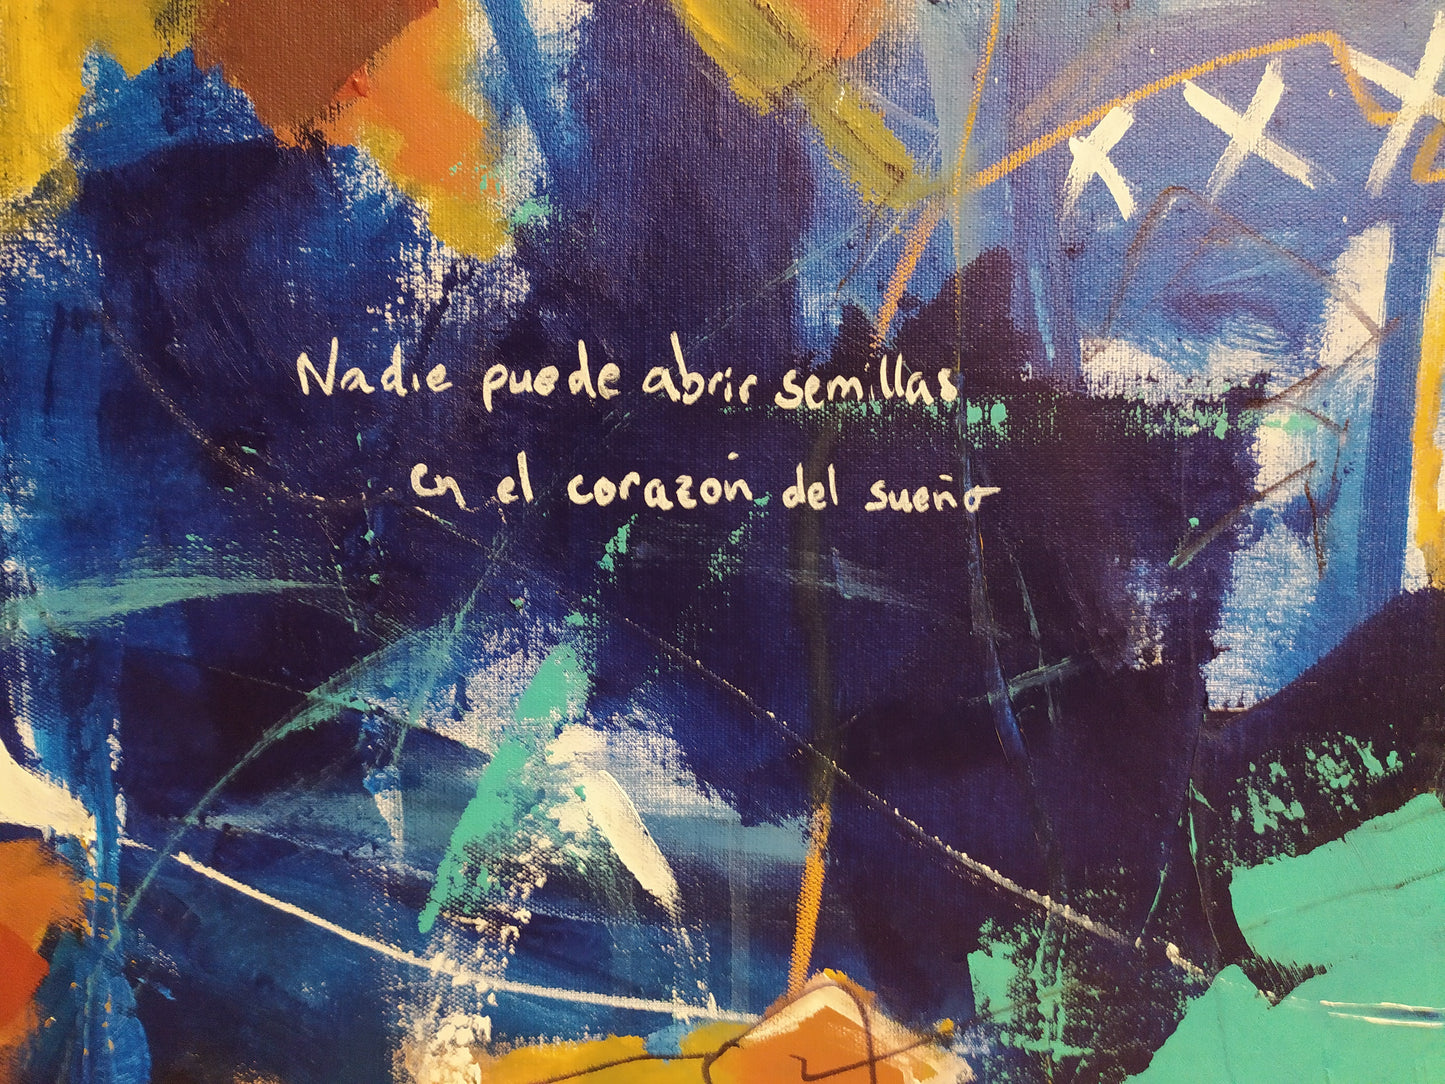 Nadie puede abrir semillas
en el corazón del sueño